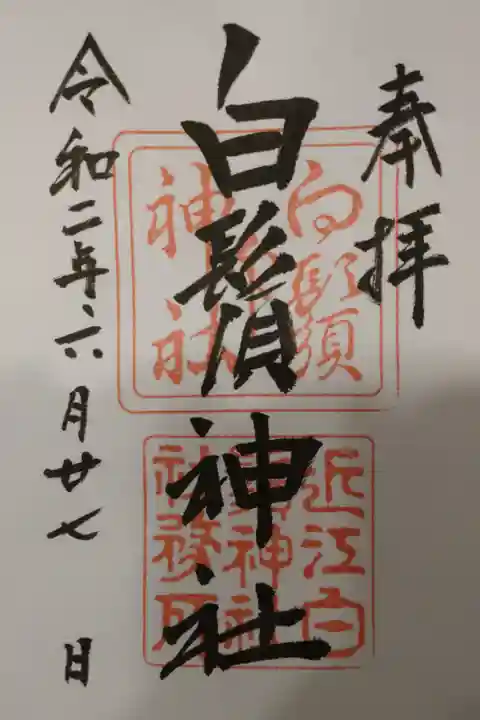 奉拝
白鬚神社
令和二年六月廿七日
白鬚
神社
近江白
鬚神社
社務所